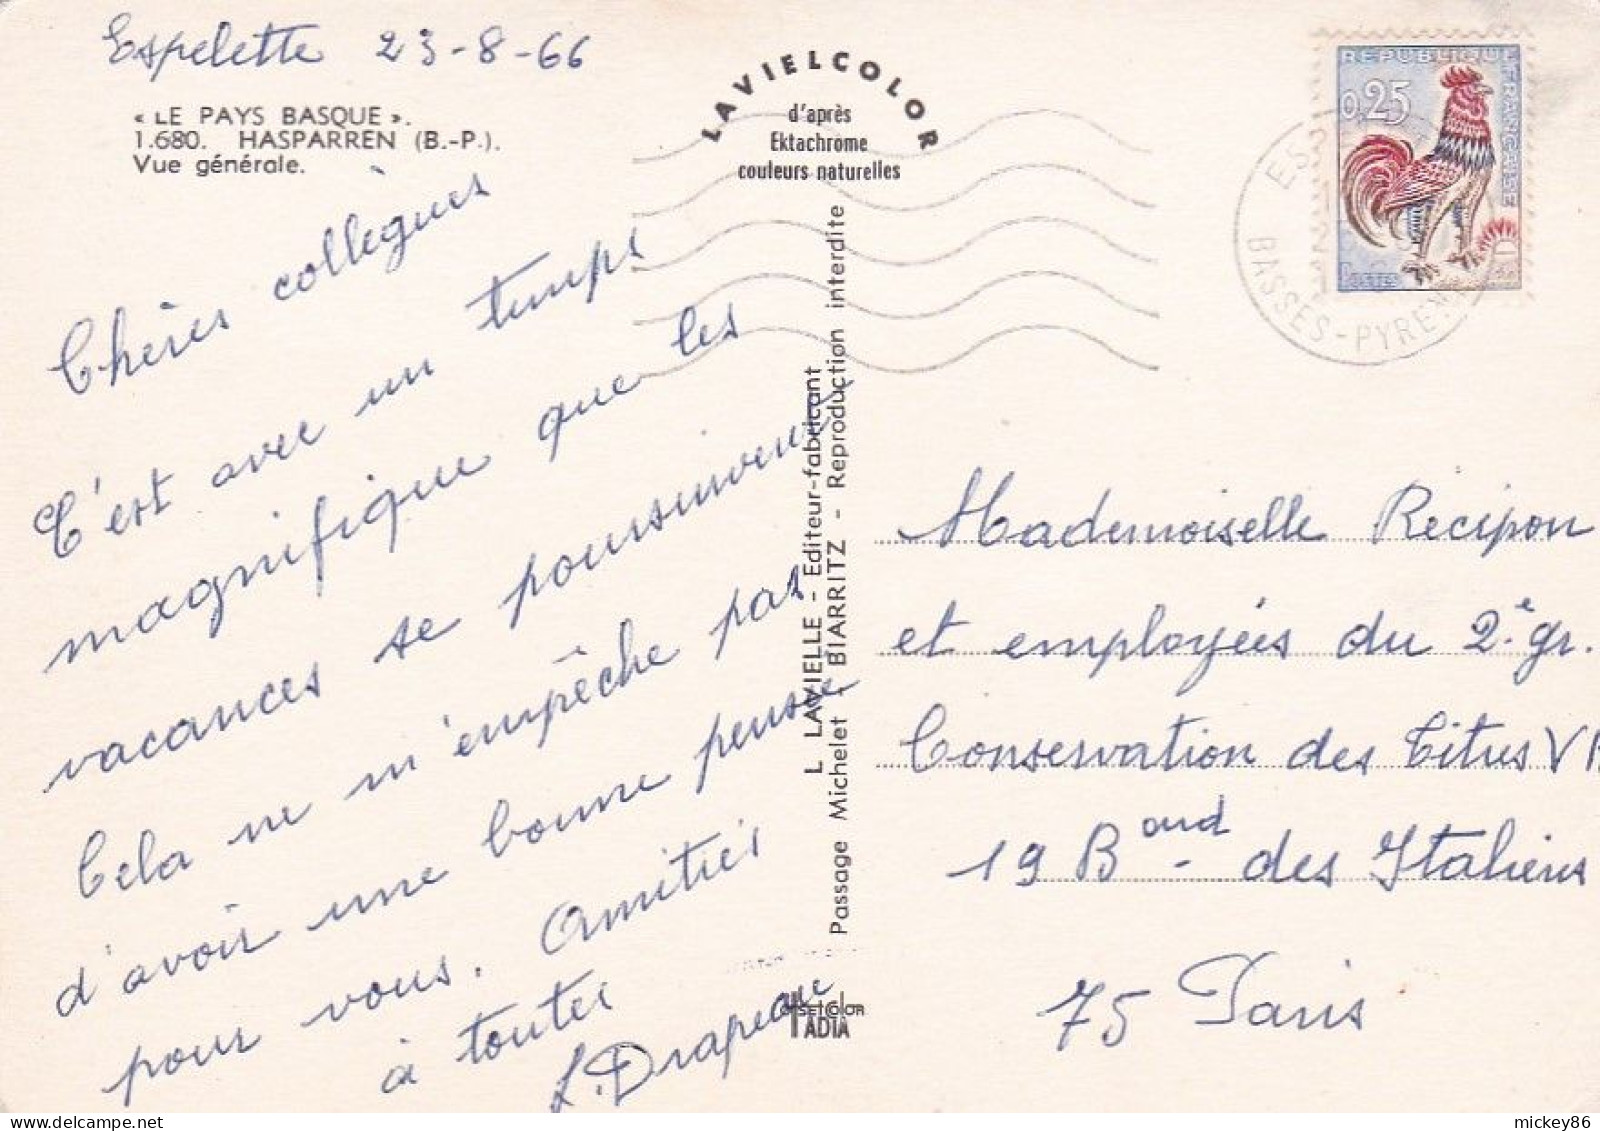 Espelette 23-8-66
« LE PAYS BASQUE ».
1.680. HASPARREN (B.-P.).
Vue générale.
Chères collègues
C'est avec un temps
magnifique que les
vacances se poursuivent
Cela ne m'empêche pas
d'avoir une bonne pensée
pour vous. Amitiés
à toutes
L. Drapeau
LAVIELCOLOR
d'après
Ektachrome
couleurs naturelles
L LAVIELLE - Editeur-fabricant
Passage Michelet - BIARRITZ - Reproduction interdite
OFFSETCOLOR
IADIA
REPUBLIQUE FRANÇAISE
0,25
POSTES
BASSES-PYRENEES
Mademoiselle Récipon
et employées du 2e gr.
Conservation des Titres VB
19 Bard des Italiens
75 Paris
mickey86